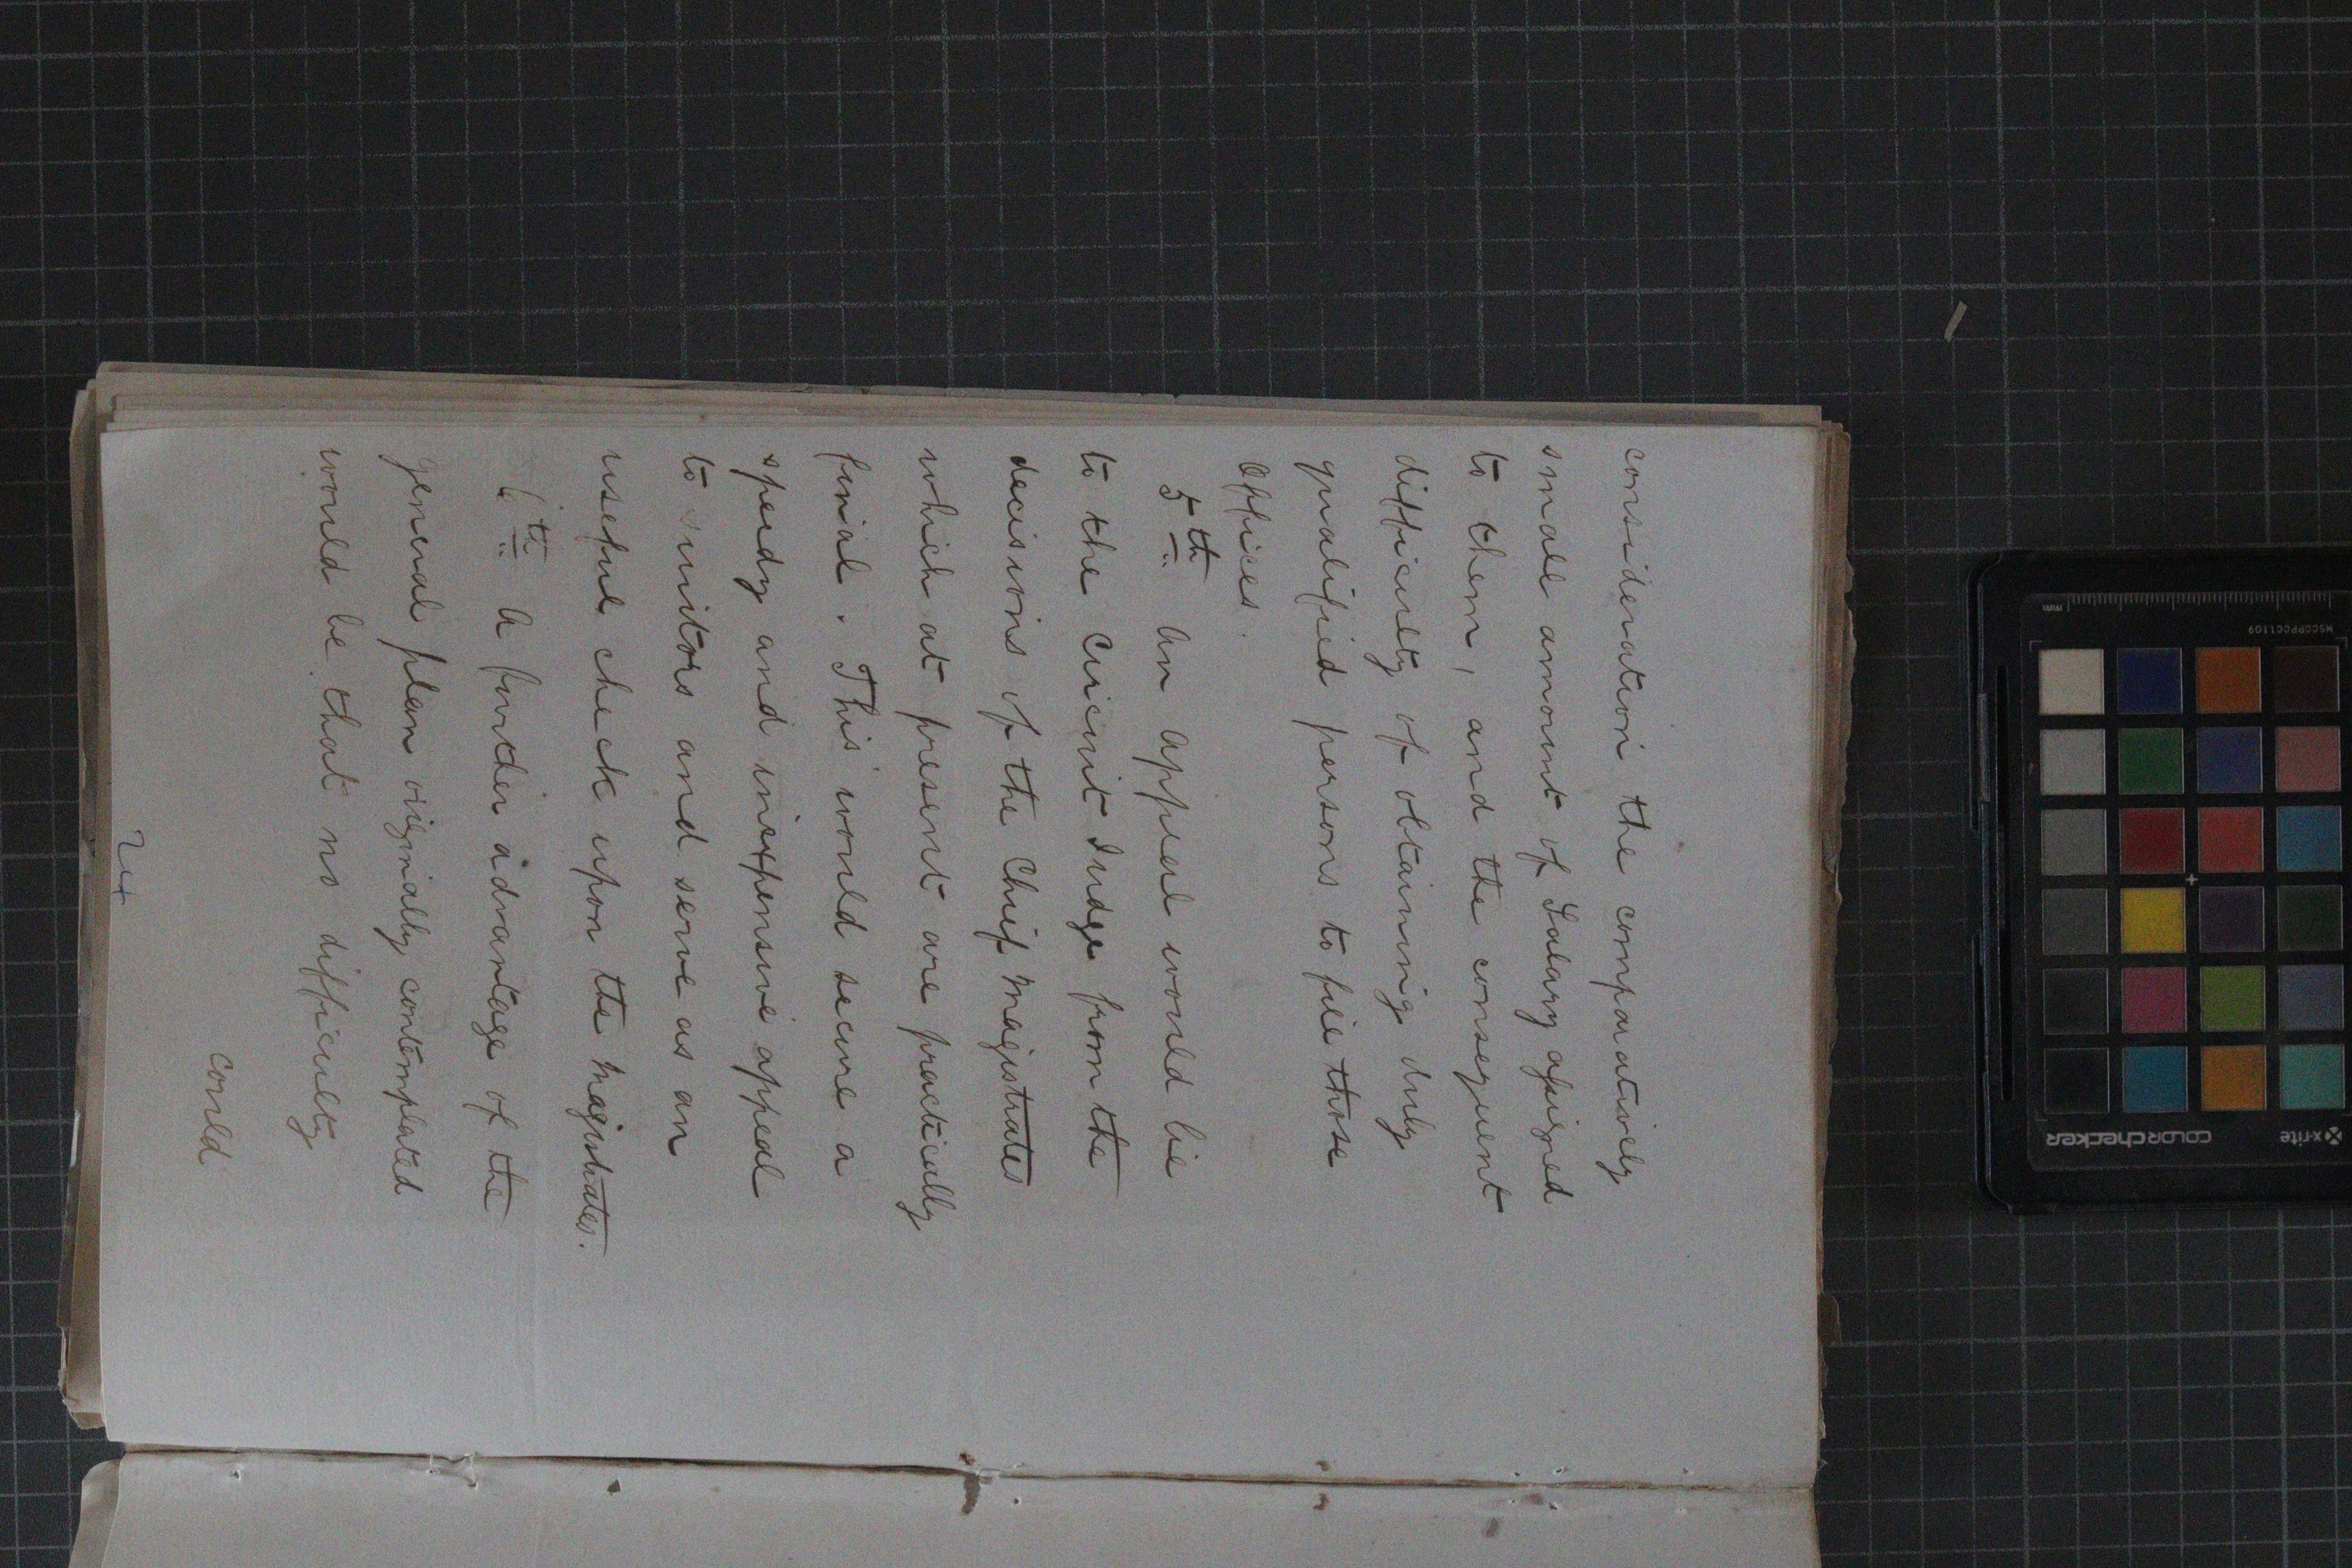 consideration the comparatively
small amount of Salary assigned
to them, and the consequent
difficulty of obtaining duly
qualified persons to fill those
offices.
5th An appeal would lie
to the Circuit Judge from the
decisions of the Chief Magistrates
which at present are practically
final. This would secure a
speedy and inexpensive appeal
to suitors and serve as an
useful check upon the Magistrates.
6th A further advantage of the
general plan originally contemplated
would be that no difficulty
could
24
mm
MSCCPPCC1109
x-rite
colorchecker